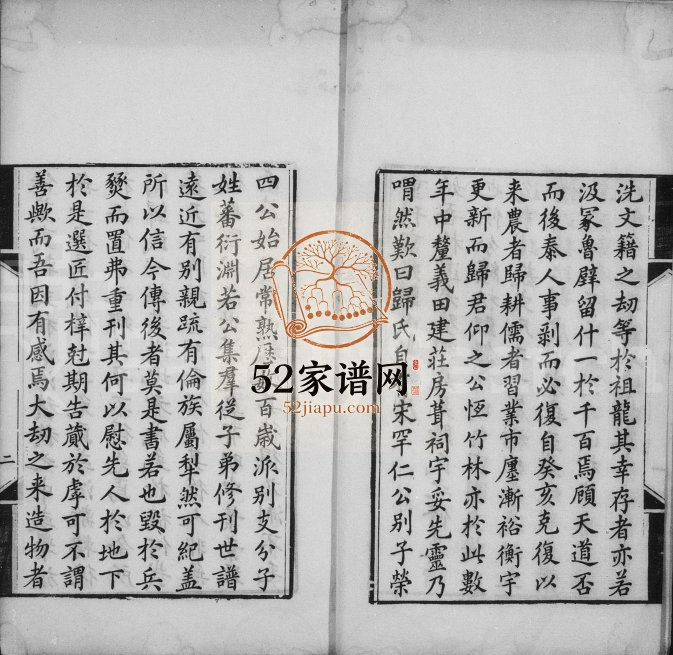 洗文籍之劫等於祖龍其幸存者亦若
汲冢魯壁留什一於千百焉顧天道否
而後泰人事剥而必復自癸亥克復以
来農者歸耕儒者習業市廛漸裕衡宇
更新而歸君仰之公恆竹林亦於此數
年中釐義田建莊房葺祠宇妥先靈乃
喟然歎曰歸氏自宋罕仁公别子榮
四公始居常熟歷數百歲派别支分子
姓蕃衍淵若公集羣從子弟修刊世譜
遠近有别親疏有倫族屬犁然可紀蓋
所以信今傳後者莫是書若也毀於兵
燹而置弗重刊其何以慰先人於地下
於是選匠付梓尅期告蕆於虖可不謂
善歟而吾因有感焉大劫之来造物者
二
52家谱网
52jiapu.com